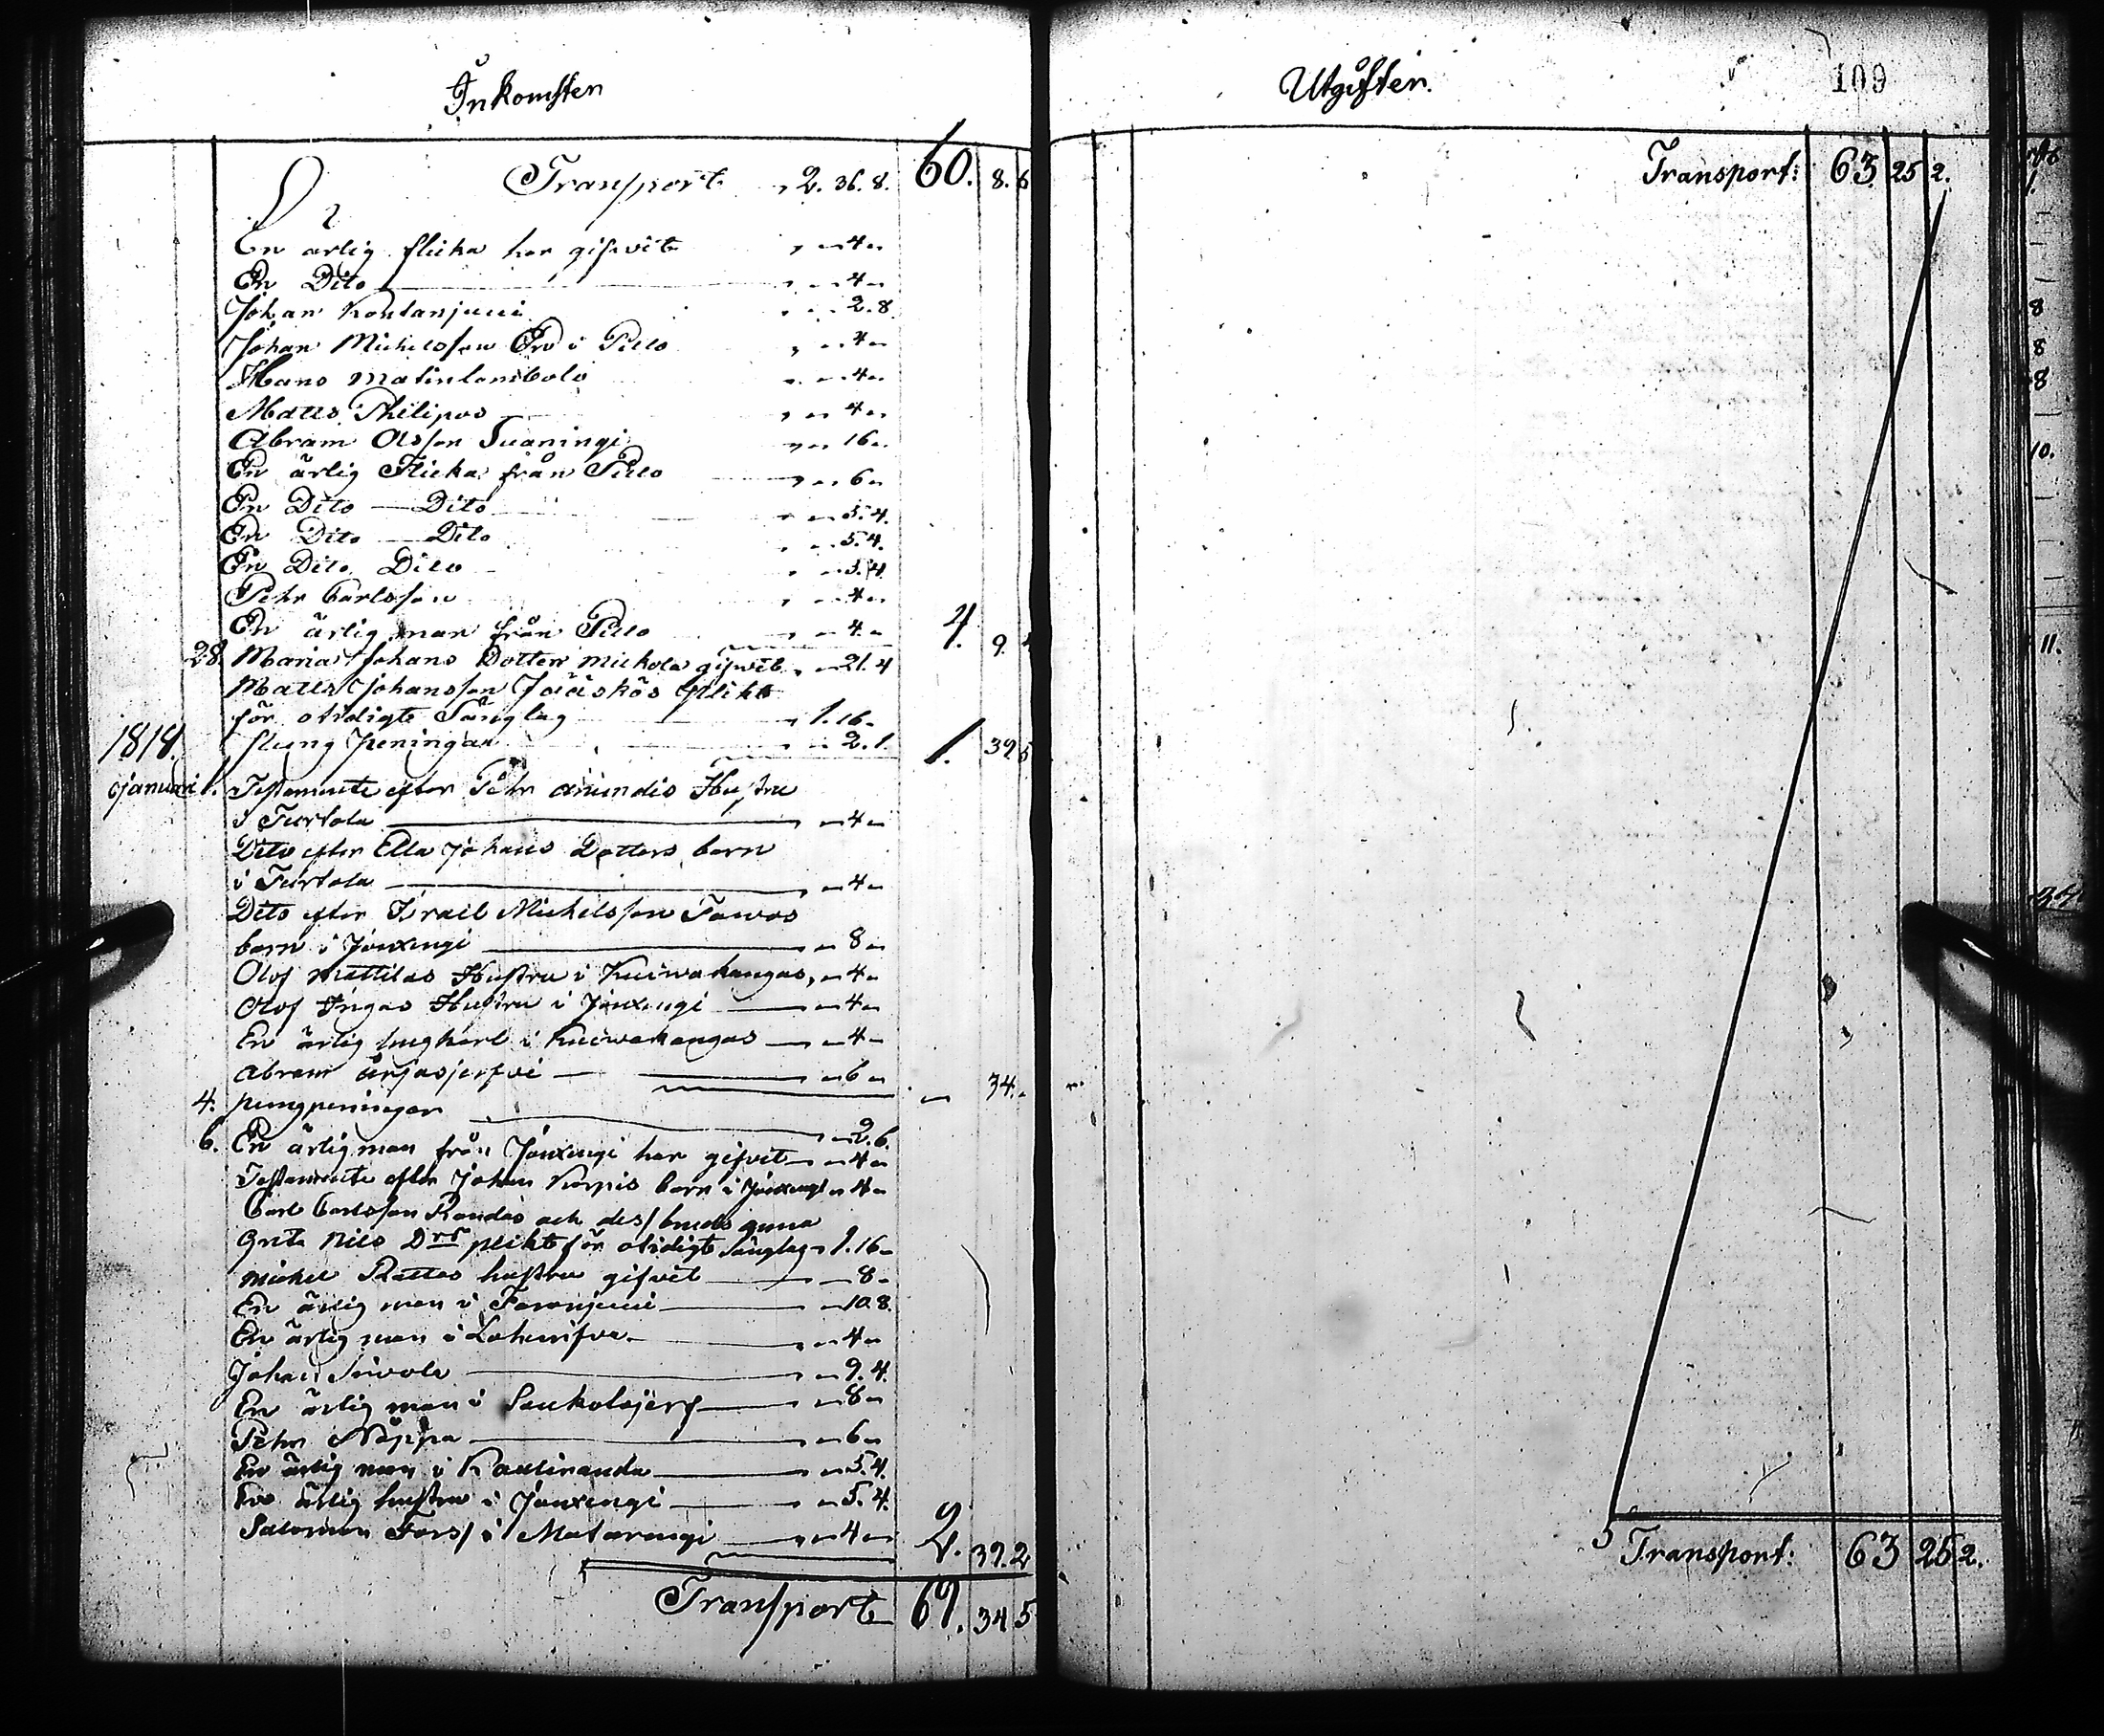 Inkomsten
Transport 2. 36. 8. 60. 8. 6
En ärlig flicka har gifvit " – 4 –
En Dito " – 4 –
Johan " – 2. 8.
Johan Michelsson i Pello " – 4 –
Hans " – 4 –
Matts Philipus " – 4 –
Abram Olsson Juaningi " – 16 –
En ärlig Flicka från Pello " – 6 –
En Dito – Dito " – 5. 4.
En Dito – Dito " – 5. 4.
En Dito Dito " – 5. 4.
Pehr Carlsson " – 4 –
En ärlig man från Pello " – 4 – 4. 9.
28. Maria Johans Dotter Mickola gifvit " – 21. 4
Matts Johansson Jääskös plikt
för otidigt Sänglag 1. 16 –
pung peningar – 2. 1. 1. 39 5
1818.
Januari 1. Testamente efter Pehr Hustru
i Turtola – 4 –
Dito efter Ella Johans Dotters barn
i Turtola – 4 –
Dito efter Israel Michelsson Tawos
barn i Jouxengi – 8 –
Olof Mattilas Hustru i Kuiwakangas, – 4 –
Olof Hustru i Jouxengi – 4 –
En ärlig ungkarl i Kuiwakangas – 4 –
Abram ärjasjerfvi – 6 – – 34. –
4. pungpeningar – 2. 6.
6. En ärlig man från Jouxengi har gifvit – 4 –
Testamente efter Johan barn i Jouxengi – 4 –
Carl Carlsson Randas och dess
Greta Nils Drs plikt för otidigt Sänglag – 1. 16 –
Michel Rattas hustru gifvit – 8 –
En ärlig man i – 10. 8.
En ärlig man i – 4 –
Johan – 9. 4.
En ärlig man i Saukolajerf – 8 –
Pehr Näppa – 6 –
En ärlig man i Kauliranda – 5. 4.
En ärlig hustru i Jouxengi – 5. 4.
Salomon Forss i Matarengi – 4 – 2. 39. 2
Transport 67. 34 5
Utgiften. 109
Transport: 63. 25 2.
Transport: 63 25 2.
8
8
8
10.
11.